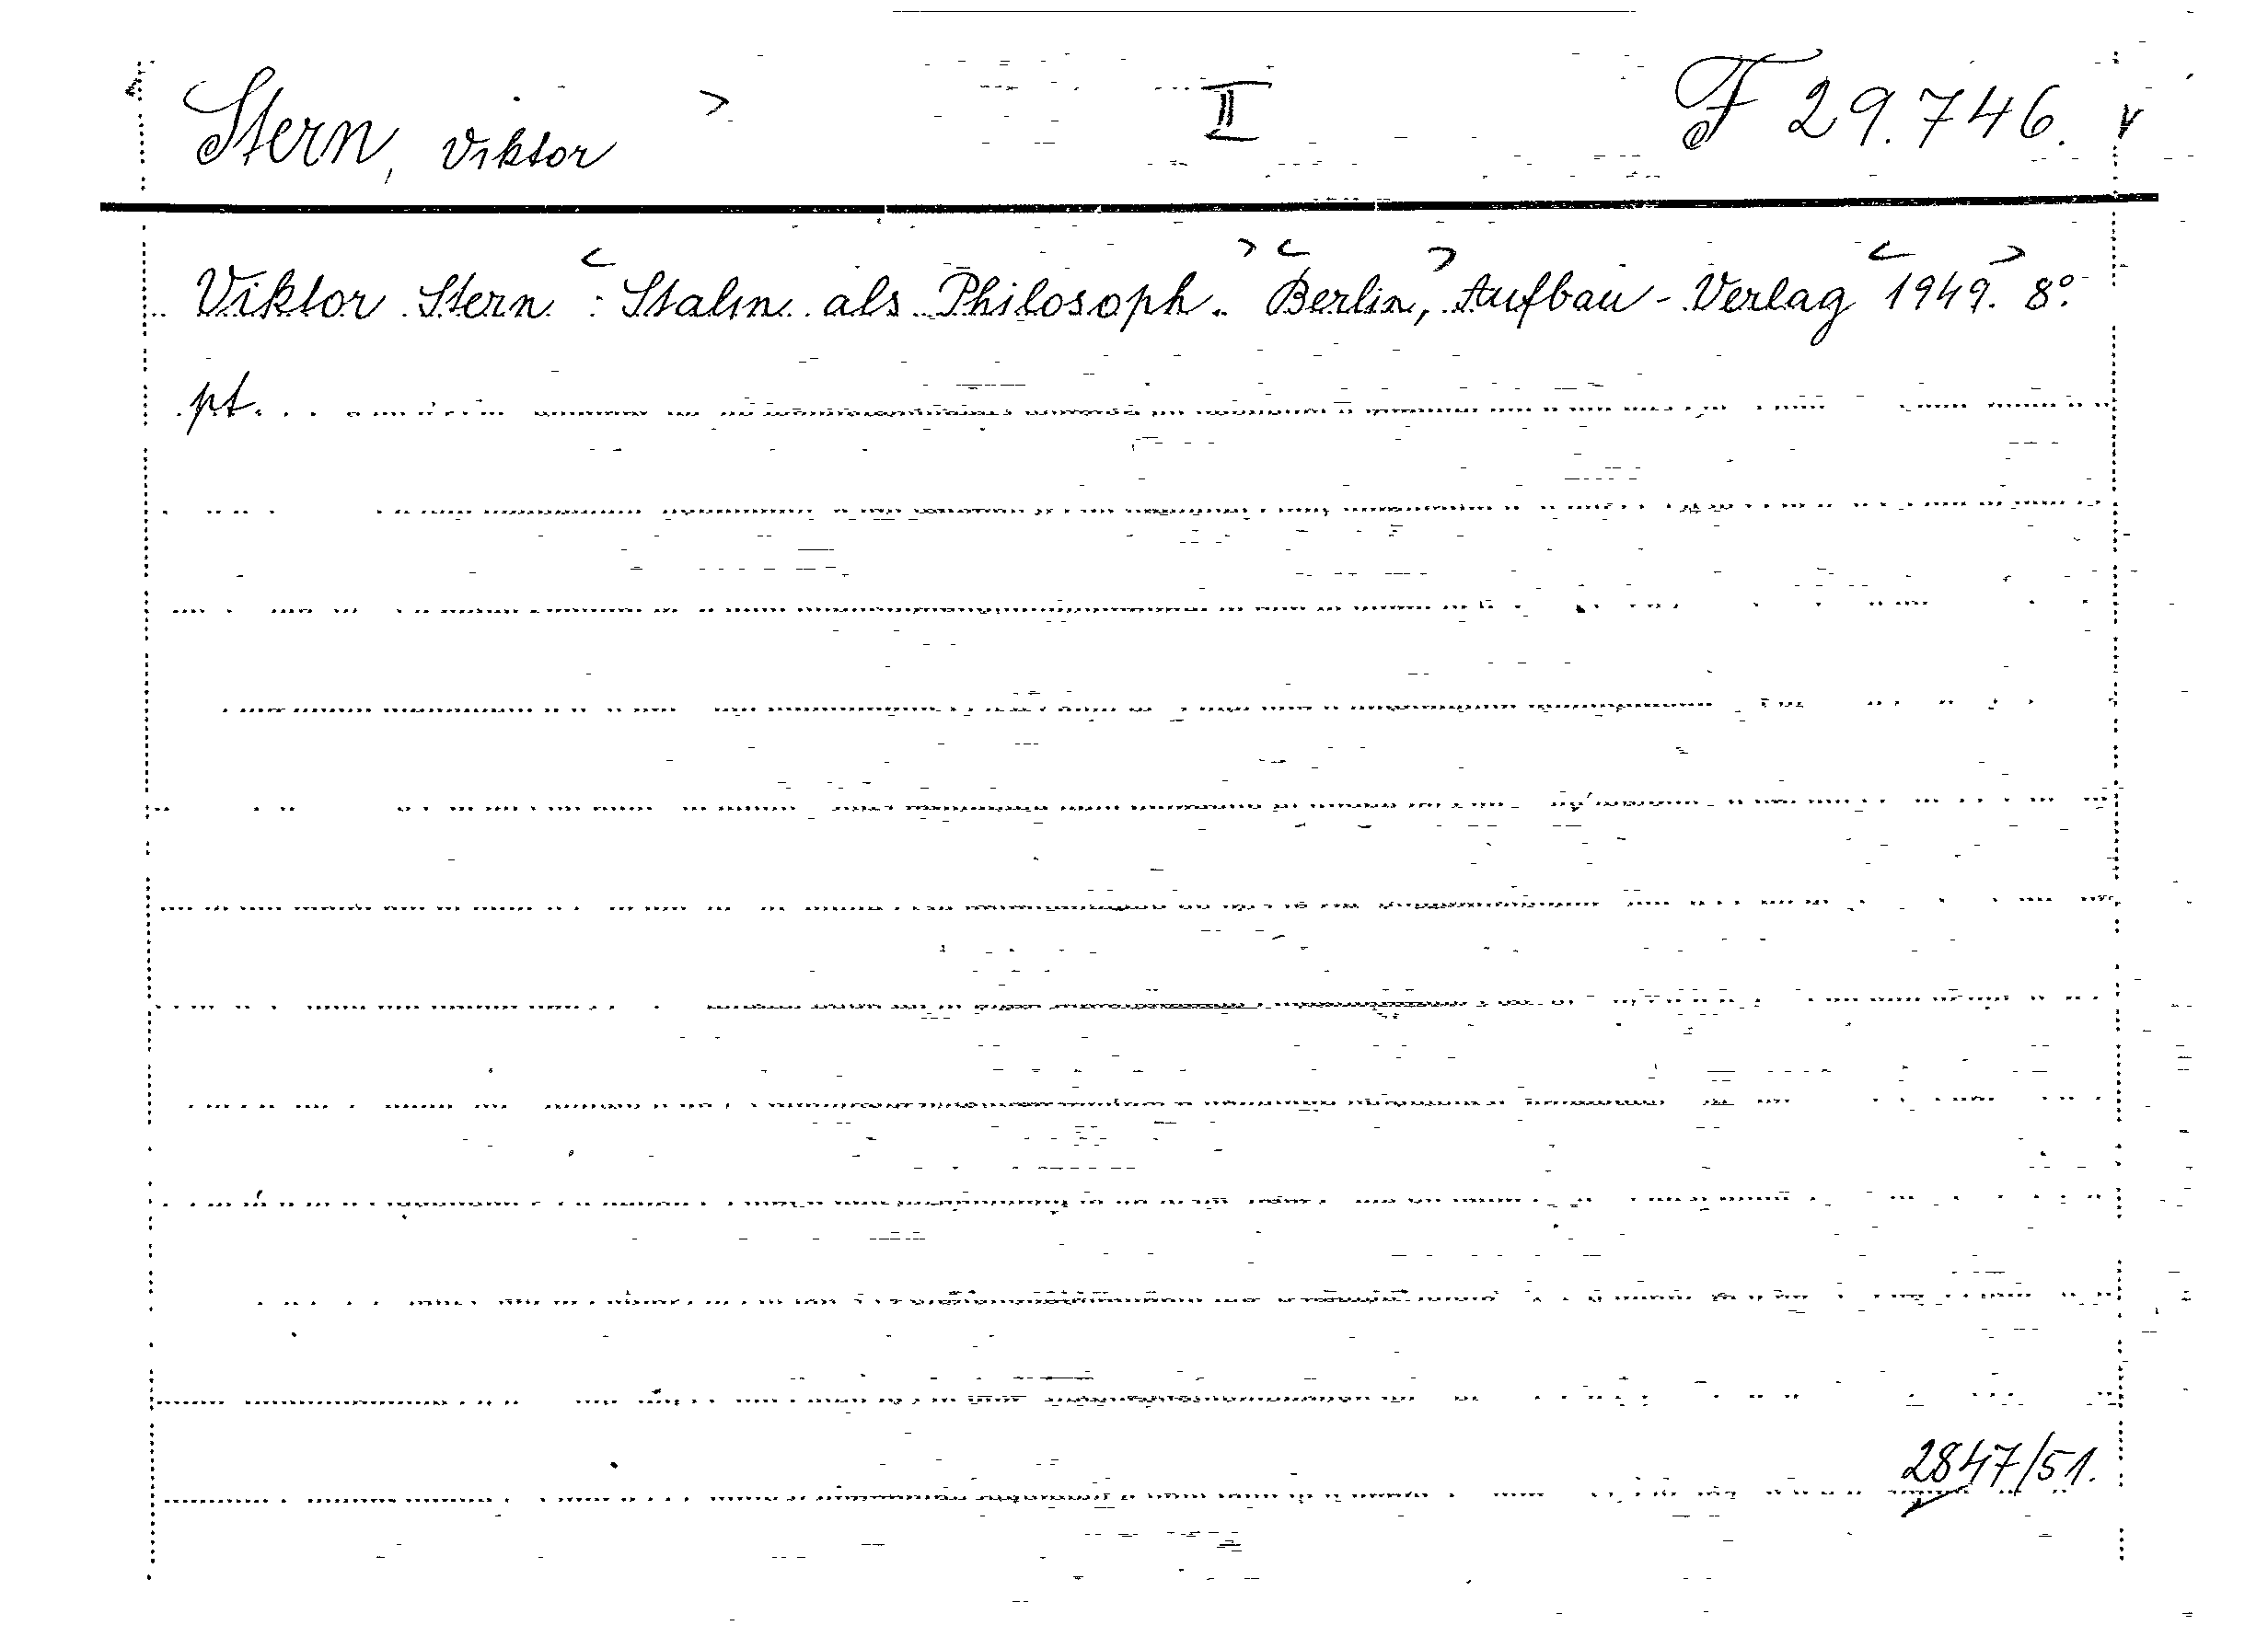 Stern, Viktor > II F 29.746.
Viktor Stern < : Stalin als Philosoph. > < Berlin, > Aufbau-Verlag < 1949. > 8°.
pt.
2847/51.